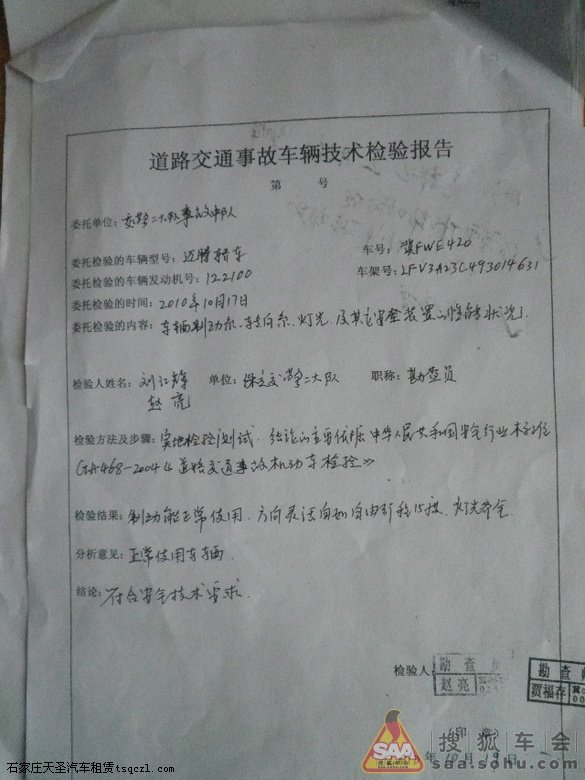 道路交通事故车辆技术检验报告
第 号
委托单位：交警二大队事故中队
委托检验的车辆型号：迈腾轿车 车号：冀FWE420
委托检验的车辆发动机号：122100 车架号：LFV3A23C493014631
委托检验的时间：2010年10月17日
委托检验的内容：车辆制动系、转向系、灯光、及其它安全装置的性能状况。
检验人姓名：刘 单位：保定交警二大队 职称：勘查员
赵亮
检验方法及步骤：实地检验测试．结论的主要依据 中华人民共和国安全行业标准
GA468-2004《道路交通事故机动车检验》
检验结果：制动能正常使用．方向灵活自如自由行程15度．灯光齐全．
分析意见：正常使用车辆．
结论：符合安全技术要求．
检验人：
勘查员
赵亮 冀06
勘查
贾福存 冀0
（印章）
10月19日
SAA
搜狐车会
saa.sohu.com
石家庄天圣汽车租赁tsgczl.com